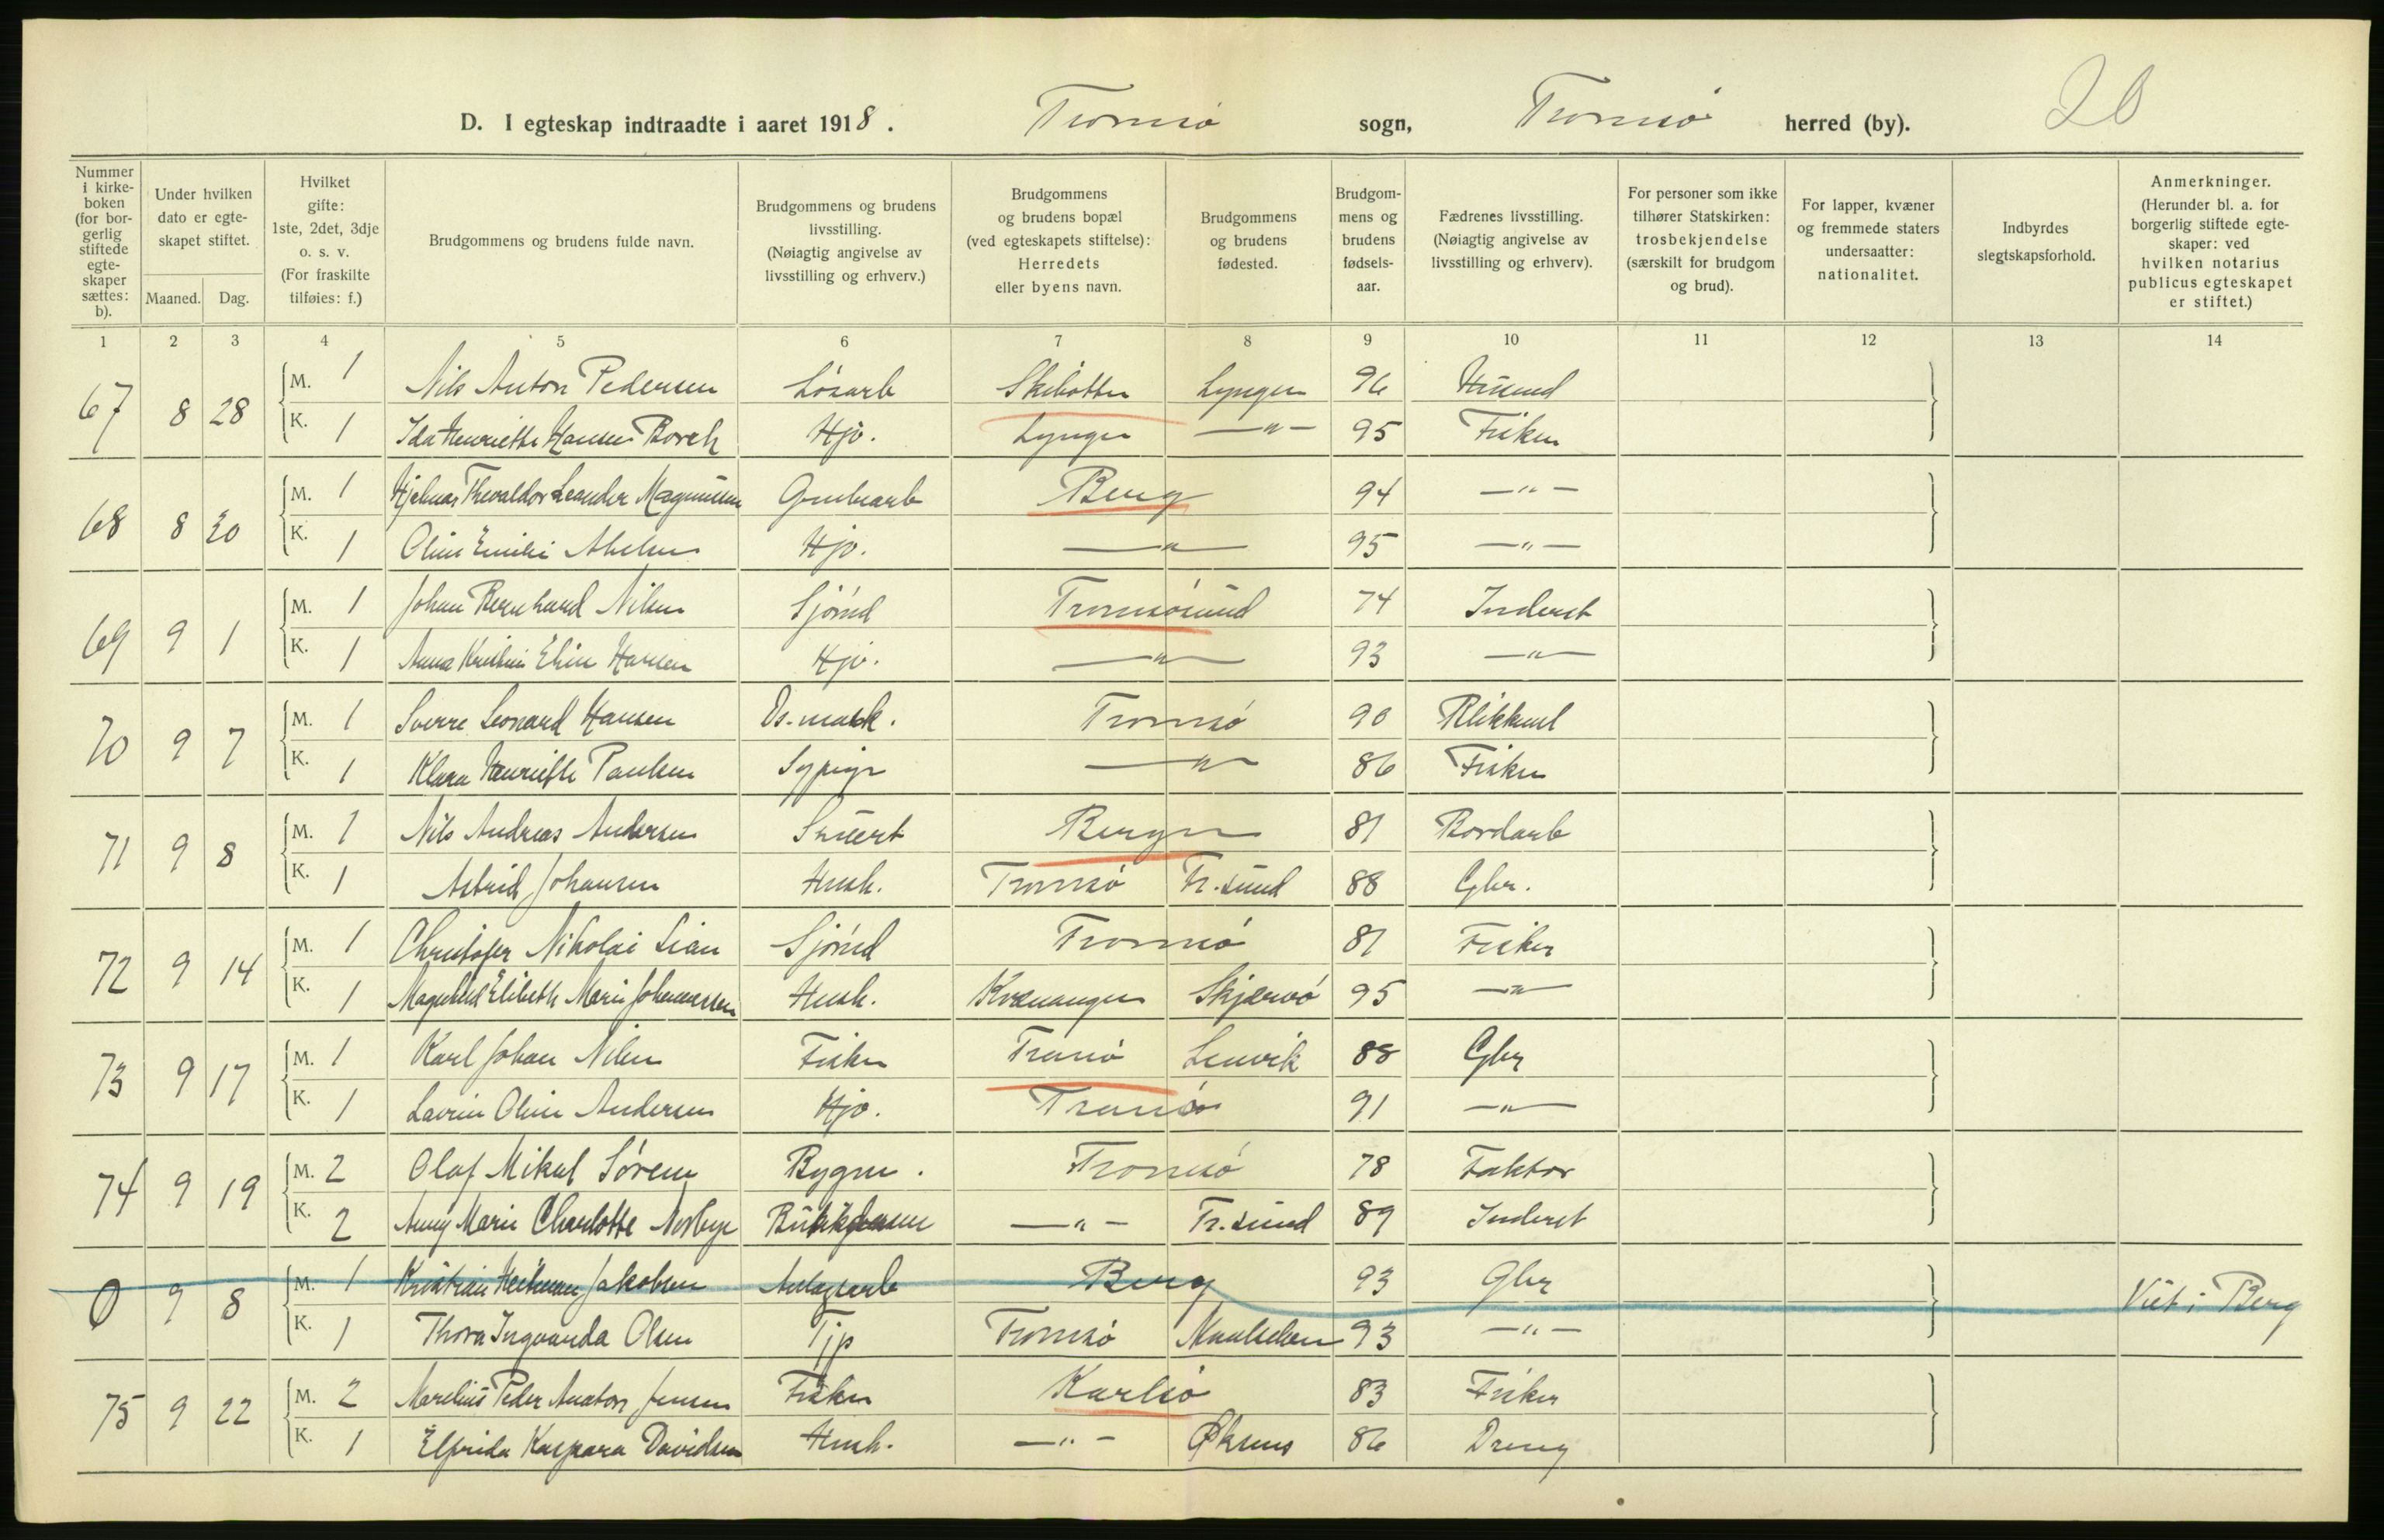 20
D. I egteskap indtraadte i aaret 1918. Tromsø sogn, Tromsø herred (by).
Nummer i kirkeboken (for borgerlig stiftede egteskaper sættes: b).
Under hvilken dato er egteskapet stiftet.
Maaned. Dag.
Hvilket gifte: 1ste, 2det, 3dje o. s. v. (For fraskilte tilføies: f.)
Brudgommens og brudens fulde navn.
Brudgommens og brudens livsstilling. (Nøiagtig angivelse av livsstilling og erhverv.)
Brudgommens og brudens bopæl (ved egteskapets stiftelse): Herredets eller byens navn.
Brudgommens og brudens fødested.
Brudgommens og brudens fødselsaar.
Fædrenes livsstilling. (Nøiagtig angivelse av livsstilling og erhverv).
For personer som ikke tilhører Statskirken: trosbekjendelse (særskilt for brudgom og brud).
For lapper, kvæner og fremmede staters undersaatter: nationalitet.
Indbyrdes slegtskapsforhold.
Anmerkninger. (Herunder bl. a. for borgerlig stiftede egteskaper: ved hvilken notarius publicus egteskapet er stiftet.)
1 2 3 4 5 6 7 8 9 10 11 12 13 14
67 8 28 M. 1 Nils Anton Pedersen Løsarb Skibotten Lyngen 96 Husmd
K. 1 Ida Henriette Hansen Borch Hjø. Lyngen —"— 95 Fisker
68 8 30 M. 1 Hjelmar Thevaldor Leander Magnussen Grubearb Berg 94 —"—
K. 1 Oline Emilie Abelsen Hjø. —"— 95 —"—
69 9 1 M. 1 Johan Bernhard Nilsen Sjømd Tromsøsund 74 Inderst
K. 1 Anna Kristine Eline Hansen Hjø. —"— 93 —"—
70 9 7 M. 1 Sverre Leonard Hansen Ds.mask. Tromsø 90 Blikksml
K. 1 Klara Henriette Paulsen Sypige —"— 86 Fisker
71 9 8 M. 1 Nils Andreas Andersen Snert Bergen 81 Bordarb
K. 1 Astrid Johansen Hush. Tromsø Tr.sund 88 Gbr.
72 9 14 M. 1 Christofer Nikolai Lian Sjømd Tromsø 81 Fisker
K. 1 Magnhild Elibeth Marie Johannessen Hush. Kvænangen Skjærvø 95 —"—
73 9 17 M. 1 Karl Johan Nilsen Fisker Tranø Lenvik 88 Gbr
K. 1 Lavrine Oline Andersen Hjø. Tranø 91 —"—
74 9 19 M. 2 Olaf Mikal Sørens Bygm. Tromsø 78 Faktor
K. 2 Anny Marie Charlotte Norbye Butikdame —"— Tr.sund 89 Inderst
0 9 8 M. 1 Kristian Heitman Jakobsen Anlægsarb Berg 93 Gbr Viet i Berg
K. 1 Thora Ingvarda Olsen Tjp Tromsø Maalselven 93 —"—
75 9 22 M. 2 Marelius Peder Anaton Jensen Fisker Karlsø 83 Fisker
K. 1 Elfrida Kaspara Davidsen Hush. —"— Øksnes 86 Dreng